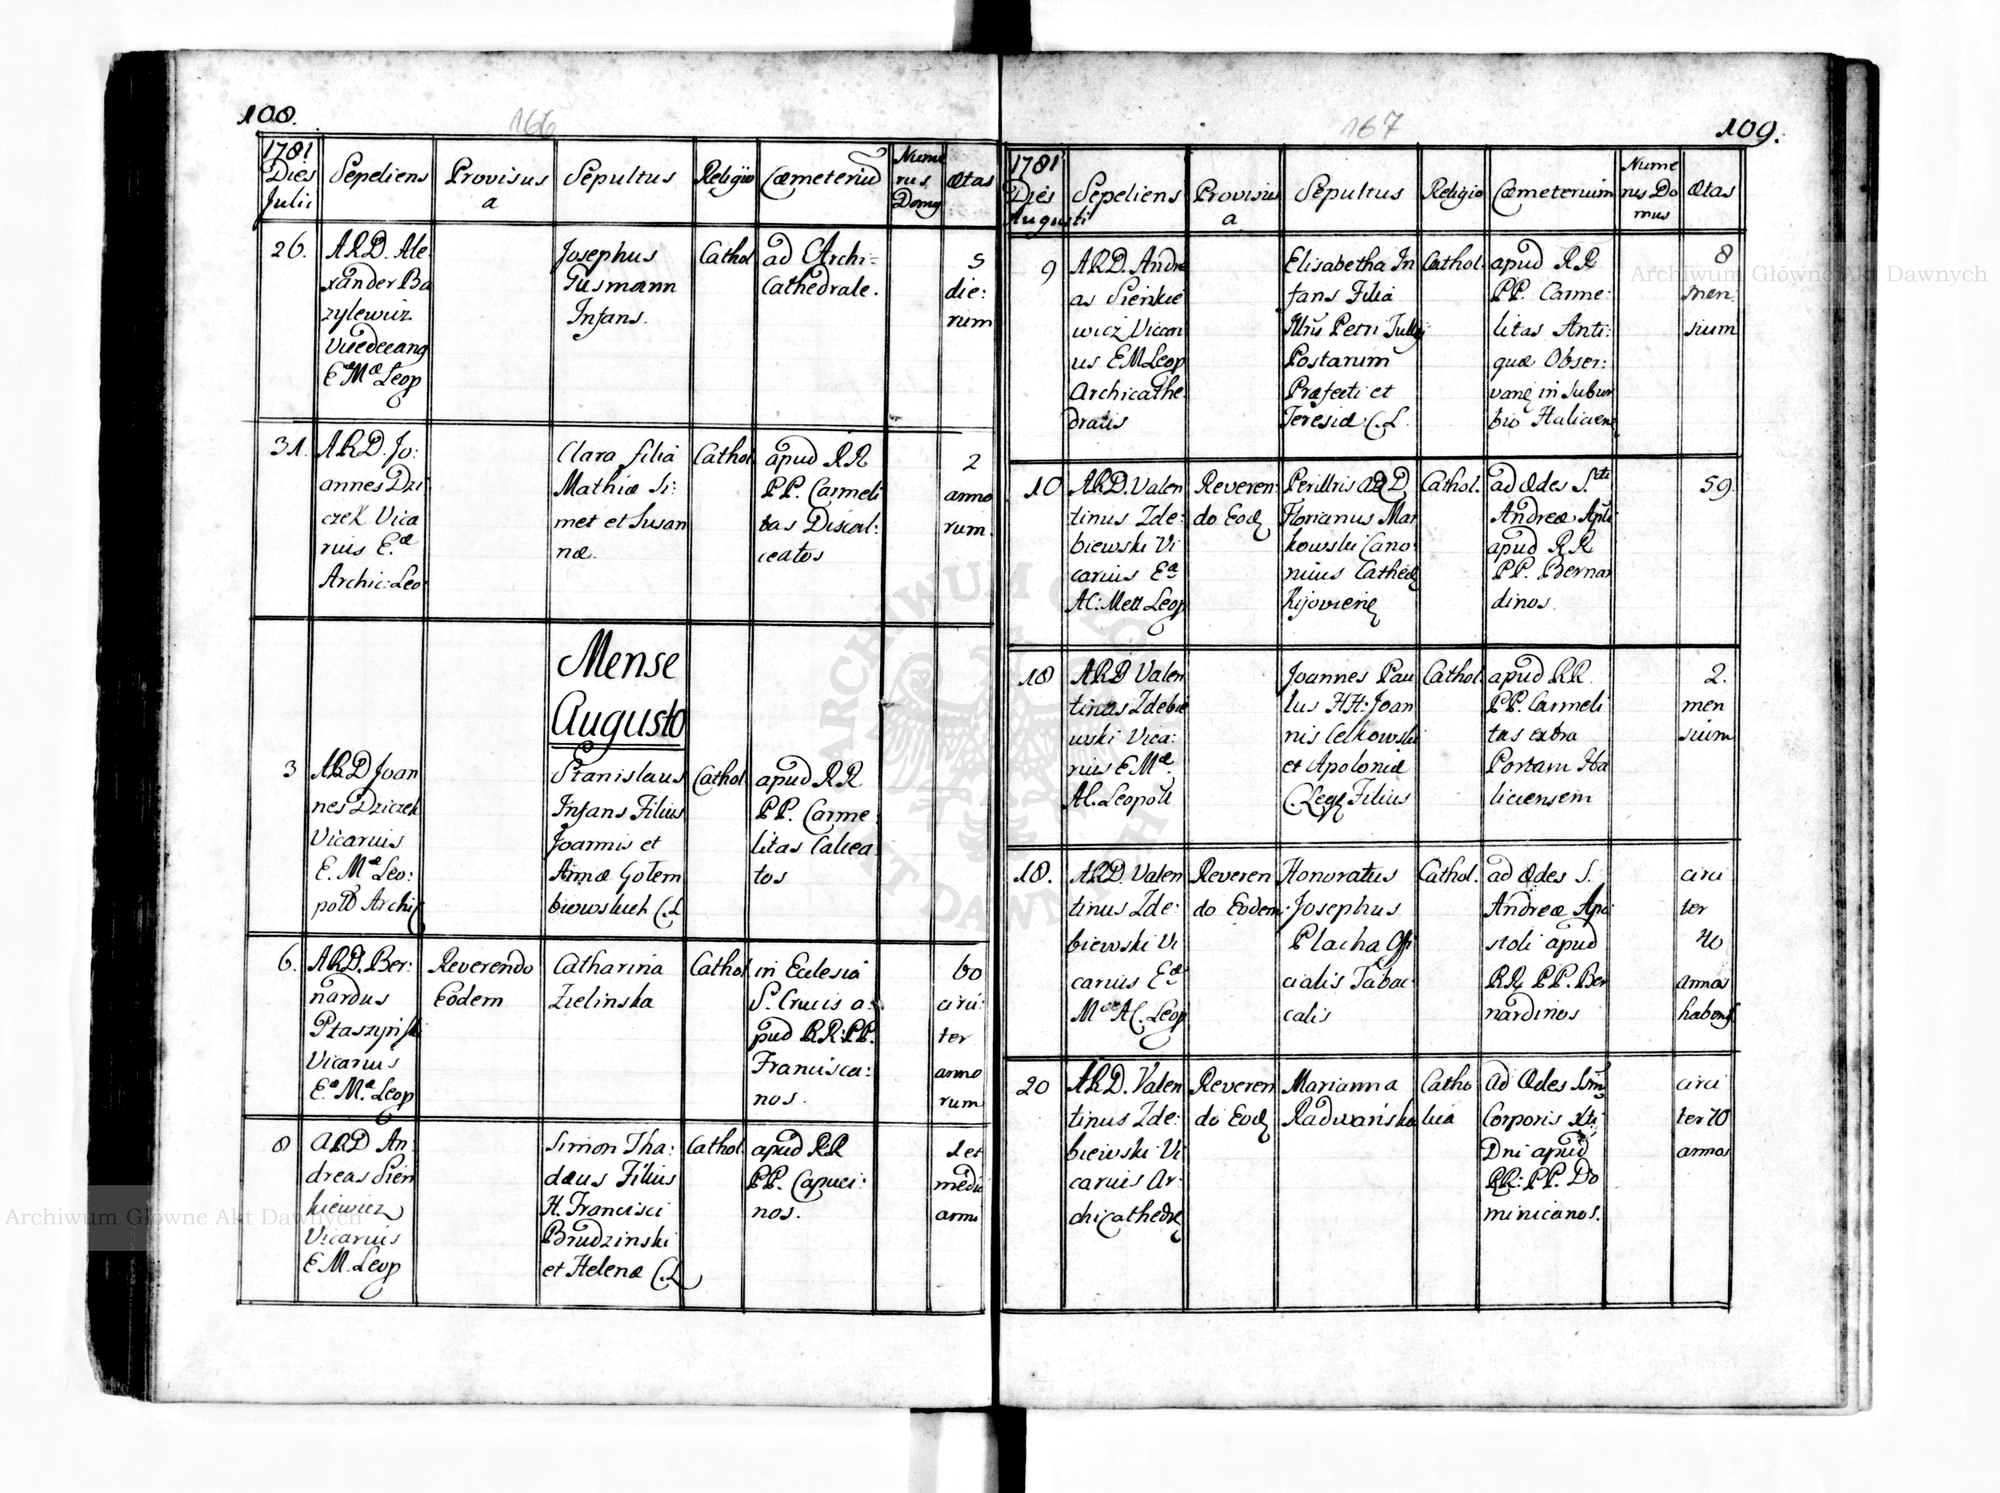 108.
166
1781
Dies
Julii
Sepeliens
Provisus
a
Sepultus
Religio
Cœmeteriũ
Nume
rus
Domꝯ
Ætas
26.
A.R.D. Ale
xander Ba
zylewicz
E M^æ Leop
Josephus
Gusmann
Infans.
Cathol
ad Archi=
Cathedrale.
5
die:
rum
31.
A.R.D. Jo:
annes Dzi
czek Vica
rius E.^æ
Archic: Leo
Clara filia
Mathiæ Si:
met et Susan
næ.
Cathol
apud RR
PP. Carmeli
tas Discal:
ceatos
2
anno
rum.
Mense
Augusto
3
A.R.D Joan
nes Dziczek
Vicarius
E. M^æ Leo:
pold Archi
Stanislaus
Infans Filius
Joannis et
Annæ Golem
biowskich C.L
Cathol.
apud RR
PP. Carme
litas Calcea
tos
6.
A.R.D. Ber:
nardus
Ptaszyński
Vicarius
E^æ M^æ Leop
Reverendo
Eodem
Catharina
Zielinska
Cathol
in Eclesia
S. Crucis a:
pud RR: PP.
Francisca:
nos.
60
circi:
ter
anno
rum
8
A.R.D An
dreas Sien
kiewicz
Vicarius
E M. Leop
Simon Tha:
dæus Filius
H. Francisci
Brudzinski
et Helenæ C.L
Cathol.
apud RR
PP. Capuci:
nos.
1 et
medii
anni
109.
167
1781
Dies
Augusti
Sepeliens
Provisus
a
Sepultus
Religio
Cœmeterium
Nume
rus Do
mus
Ætas
9
A.R.D. Andre
as Sienkie
wicz Vicari
us E M Leop
Archicathe
dralis
Elisabetha In
fans Filia
Petri
Postarum
Præfecti et
Teresiæ C.L.
Cathol.
apud RR
PP. Carme:
litas Anti:
quæ Obser:
in Subur
bio
8
men:
sium
10
A.R.D. Valen
tinus Zde:
biewski Vi
carius E^æ
AC: Leop
Reveren
do Eod
Perillris D
Florianus Mar
kowski Cano
nicus Cathed
Kijovien
Cathol.
ad Ædes S.^cti
Andreæ Apli
apud RR
PP. Bernar
dinos.
59.
18
A.R.D Valen
tinus Zdebie
wski Vica:
rius E M^æ
AC. Leopoli
Joannes Pau
lus HH: Joan
nis Celkowski
et Apoloniæ
C. Leg Filius
Cathol.
apud RR
PP. Carmeli
tas extra
Portam Ha
liciensem
2.
men
sium
18.
A.R.D. Valen
tinus Zde:
biewski Vi
carius E^æ
M AC. Leop
Reveren
do Eodem
Honoratus
Josephus
Placha Offi
cialis Tabac
calis
Cathol.
ad Ædes S.
Andreæ Apo
stoli apud
RR PP. Ber
nardinos
circi
ter
40
annos
habens
20
A.R.D. Valen
tinus Zde:
biewski Vi
carius Ar:
chicathedr
Reveren
do Eod
Marianna
Radwańska
Catho
lica
ad Ædes Ssmi
Corporis Xti
Dni apud
RR: PP. Do
minicanos.
circi
ter 70
annos
Archiwum Główne Akt Dawnych
Archiwum Główne Akt Dawnych
ARCHIWUM GŁÓWNE
AKT DAWNYCH